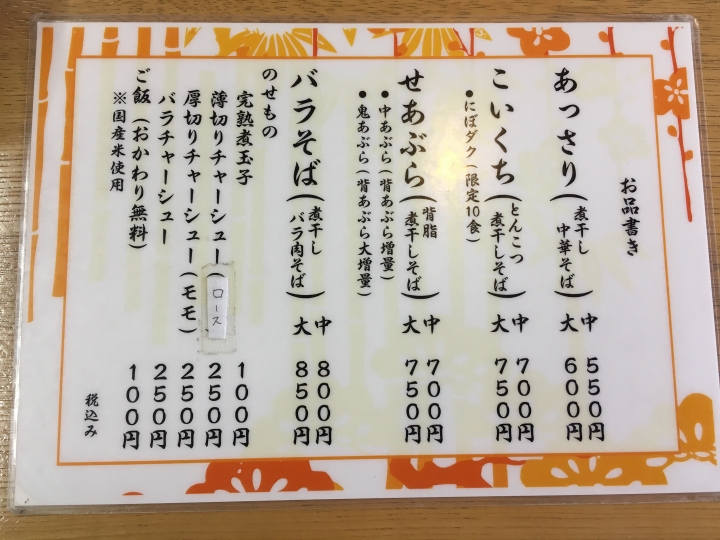 お品書き
あっさり(煮干し中華そば) 中 550円
大 600円
こいくち(とんこつ煮干しそば) 中 700円
大 750円
●にぼダク(限定10食)
せあぶら(背脂煮干しそば) 中 700円
大 750円
●中あぶら(背あぶら増量)
●鬼あぶら(背あぶら大増量)
バラそば(煮干しバラ肉そば) 中 800円
大 850円
のせもの
完熟煮玉子 100円
薄切りチャーシュー(ロース 250円
厚切りチャーシュー(モモ) 250円
バラチャーシュー 250円
ご飯(おかわり無料) 100円
※国産米使用
税込み